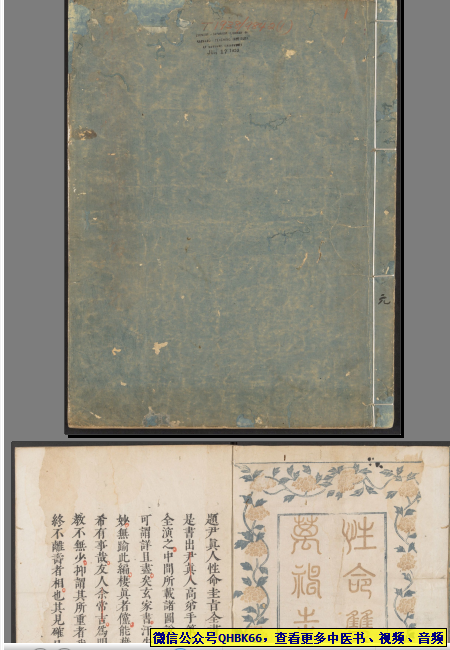 元
性命雙
萬神圭
題尹眞人性命圭旨全書
是書出尹眞人高弟手
全演之中間所載諸圖
可謂詳且盡矣玄家書汗
妙無踰此編棲眞者儻能
希有事哉友人余常吉爲
教不無少抑謂其所重者
終不離壽者相也其見確
微信公众号QHBK66，查看更多中医书、视频、音频